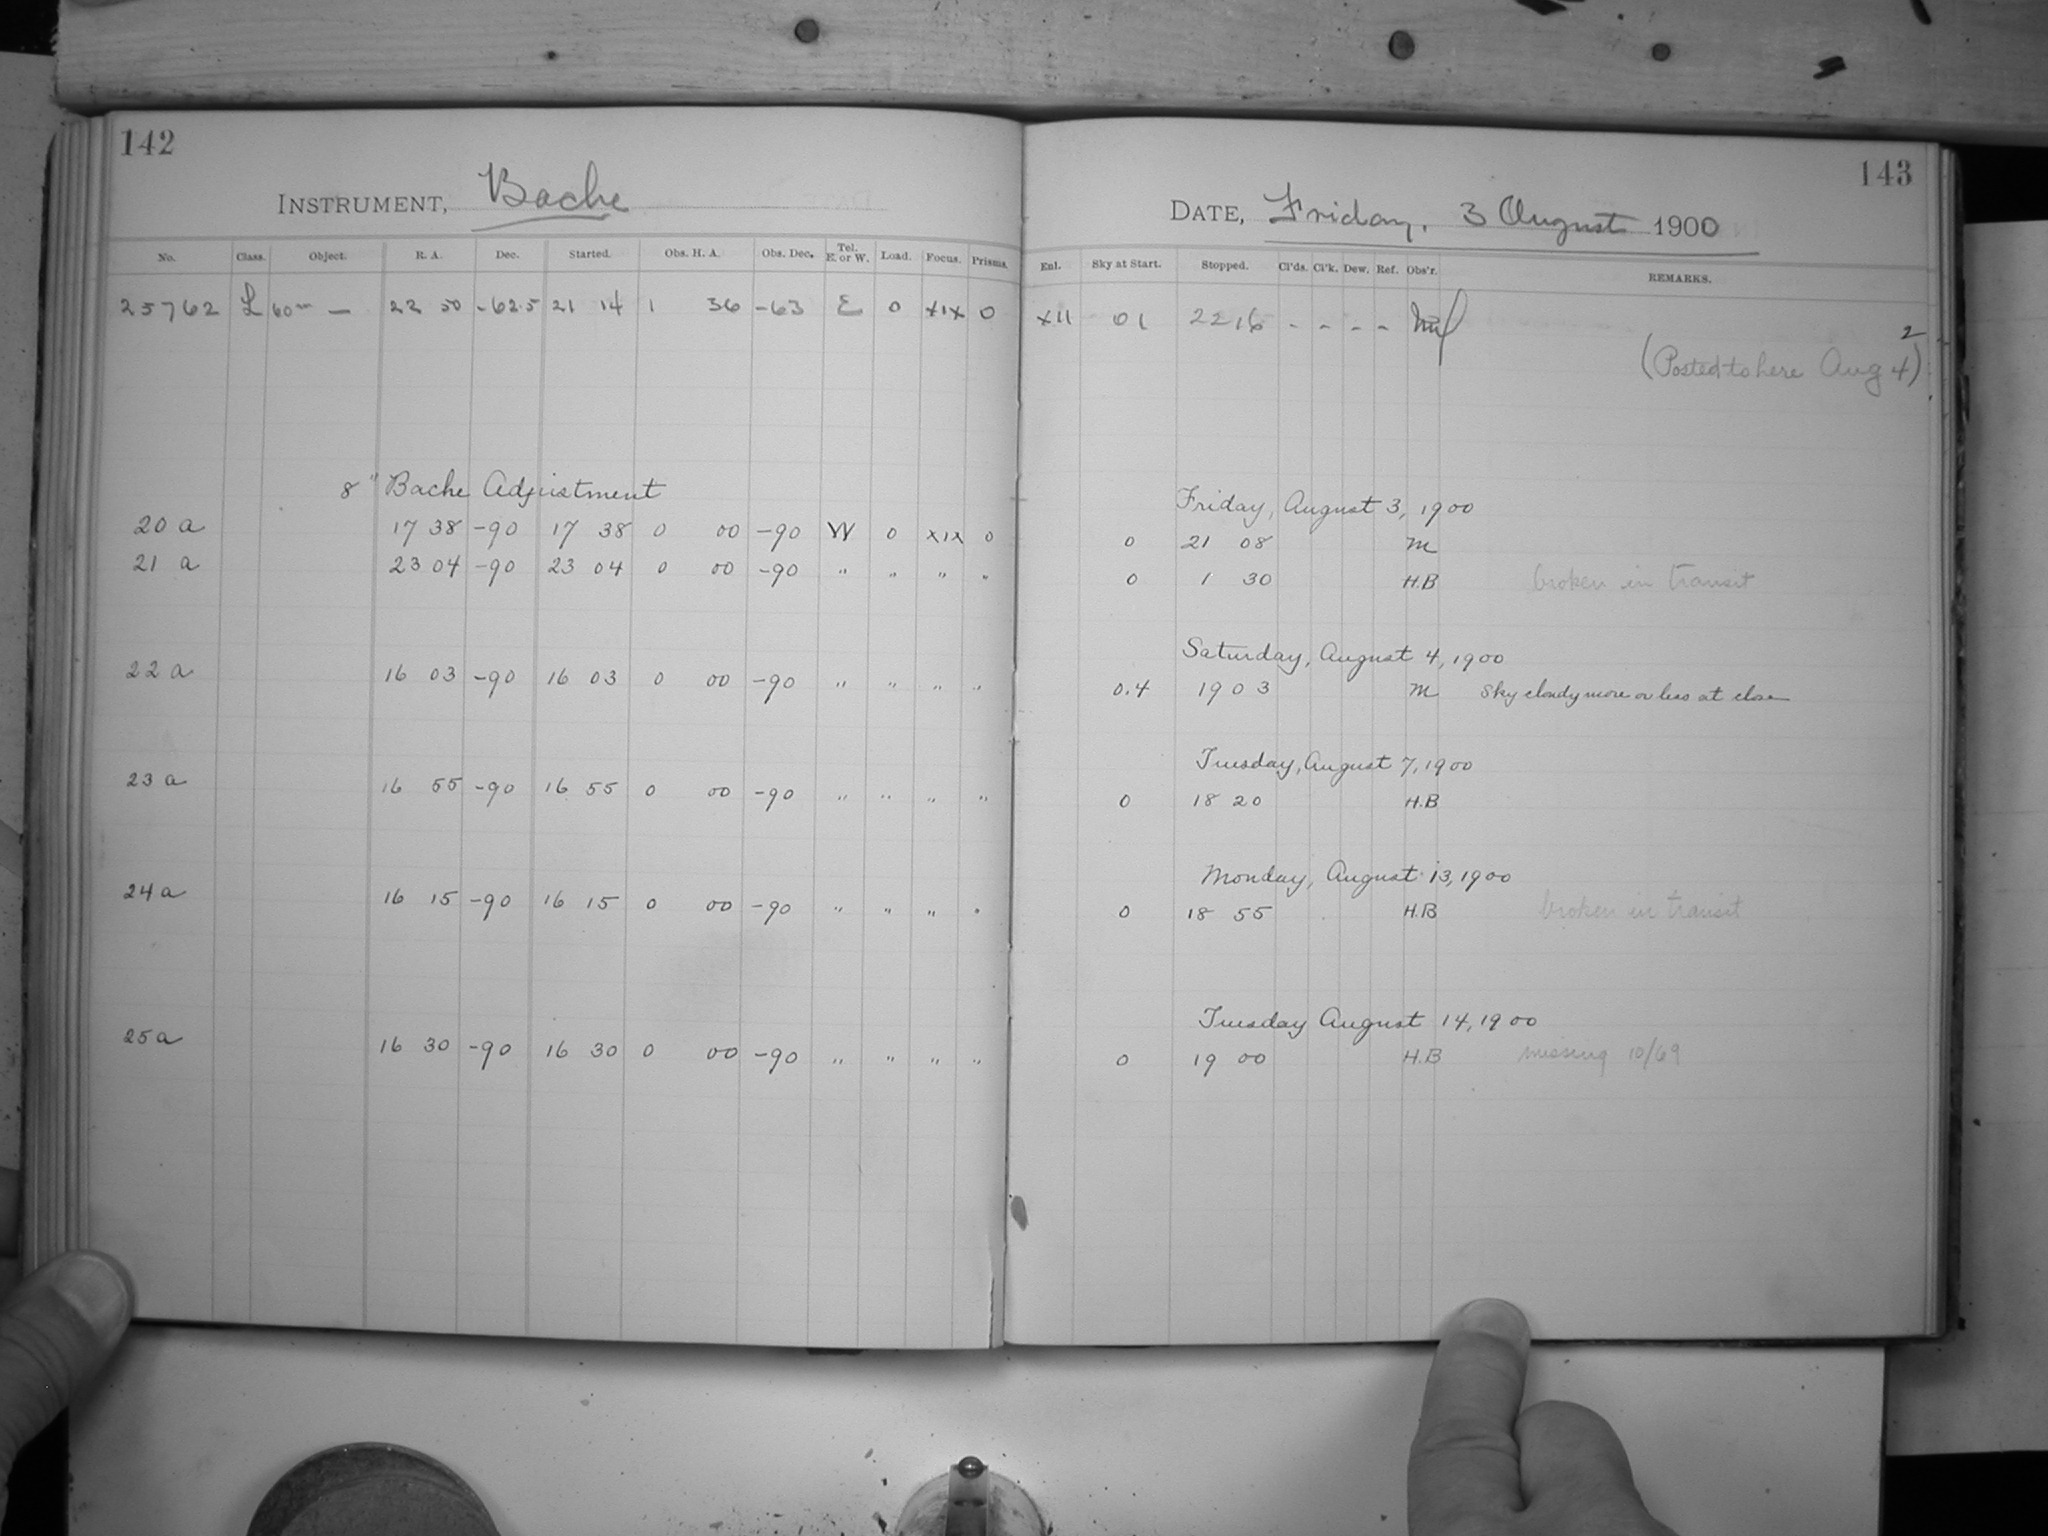 142
INSTRUMENT, Bache
No. Class. Object. R. A. Dec. Started. Obs. H. A. Obs. Dec. Tel. E. or W. Load. Focus. Prisms.
25762 L 60m — 22 50 -62.5 21 14 1 36 -63 E 0 XIX 0
8" Bache Adjustment
20 a 17 38 -90 17 38 0 00 -90 W 0 XIX 0
21 a 23 04 -90 23 04 0 00 -90 " " " "
22 a 16 03 -90 16 03 0 00 -90 " " " "
23 a 16 55 -90 16 55 0 00 -90 " " " "
24 a 16 15 -90 16 15 0 00 -90 " " " "
25 a 16 30 -90 16 30 0 00 -90 " " " "
143
DATE, Friday, 3 August 1900
Enl. Sky at Start. Stopped. Cl'ds. Cl'k. Dew. Ref. Obs'r. REMARKS.
XII 01 22 16 - - - -
2
(Posted to here Aug 4)
Friday, August 3, 1900
0 21 08 M
0 1 30 H.B broken in transit
Saturday, August 4, 1900
0.4 19 03 M Sky cloudy more or less at close
Tuesday, August 7, 1900
0 18 20 H.B
Monday, August 13, 1900
0 18 55 H.B broken in transit
Tuesday August 14, 1900
0 19 00 H.B missing 10/69